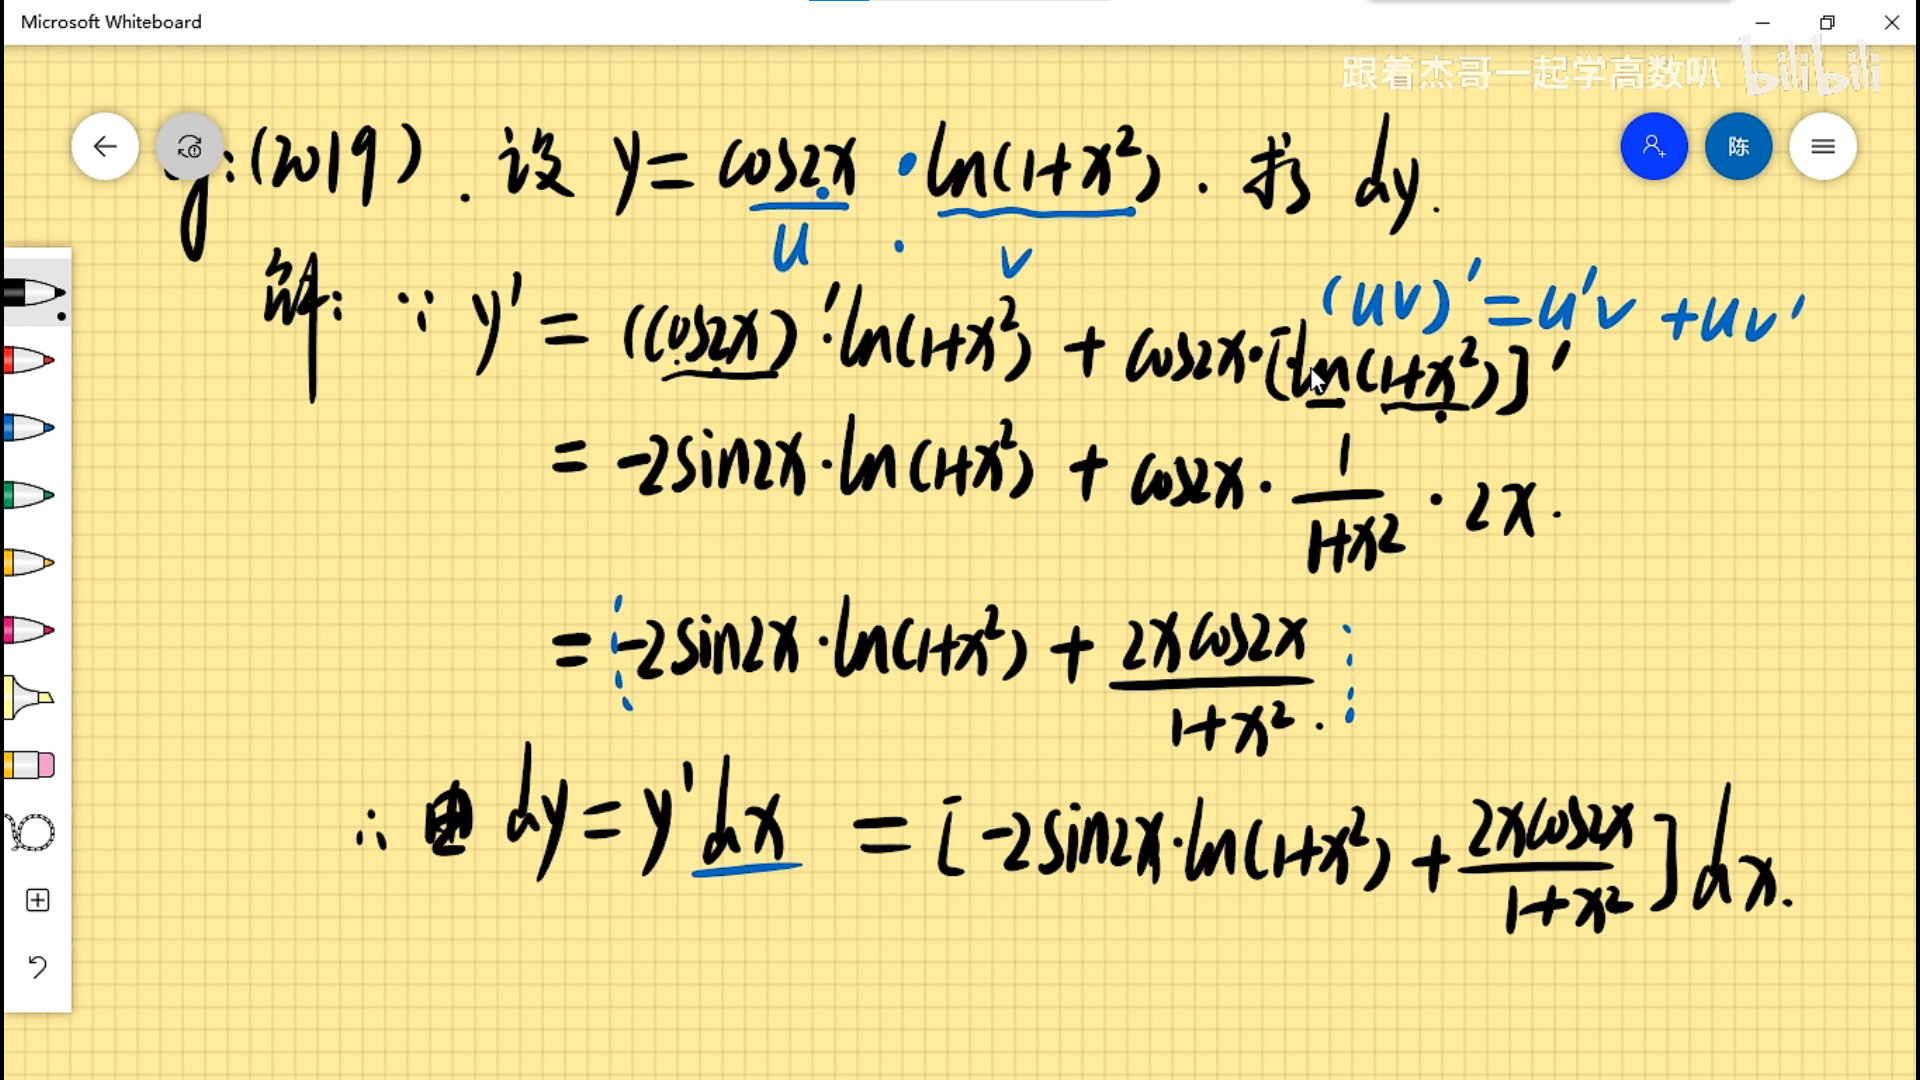 Microsoft Whiteboard
跟着杰哥一起学高数叭 bilibili
陈
g:(2019). 设 y=cos2x·ln(1+x²). 求 dy.
u · v
(uv)'=u'v+uv'
解: ∵ y' = (cos2x)'·ln(1+x²) + cos2x·[ln(1+x²)]'
= -2sin2x·ln(1+x²) + cos2x·1/(1+x²)·2x.
= -2sin2x·ln(1+x²) + 2xcos2x/(1+x²).
∴ dy=y'dx = [-2sin2x·ln(1+x²)+2xcos2x/(1+x²)]dx.